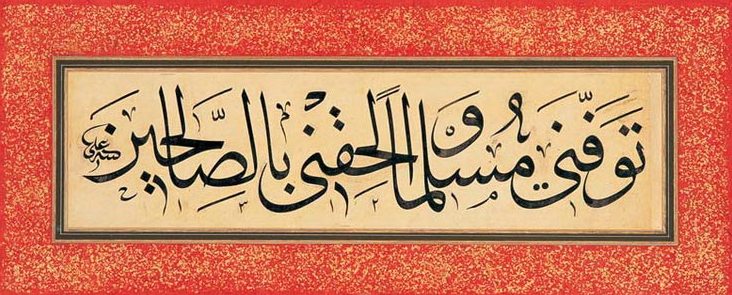 تَوَفَّنِي مُسْلِمًا وَأَلْحِقْنِي بِالصَّالِحِينَ